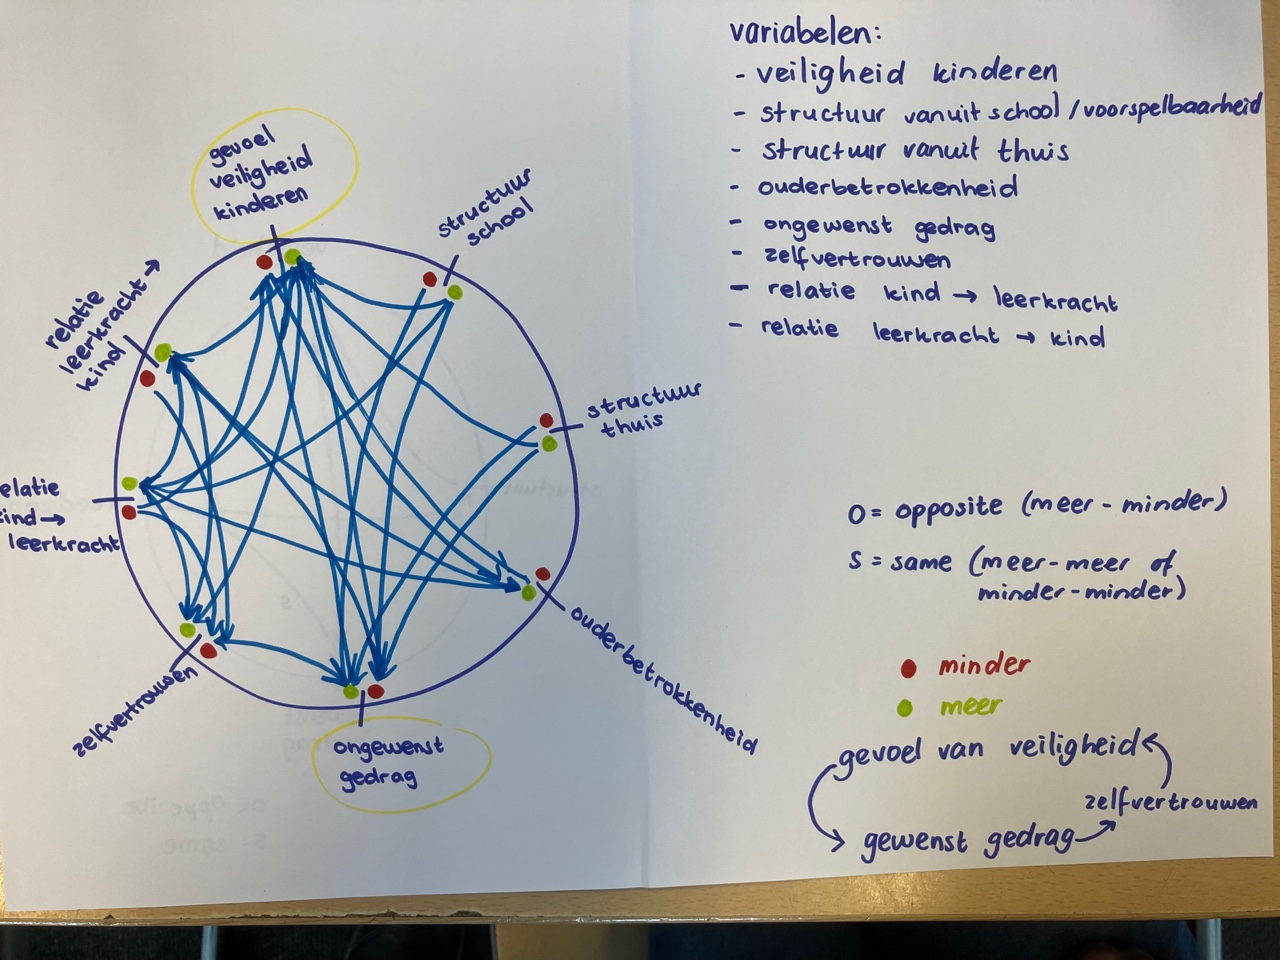 variabelen:
- veiligheid kinderen
- structuur vanuit school / voorspelbaarheid
- structuur vanuit thuis
- ouderbetrokkenheid
- ongewenst gedrag
- zelfvertrouwen
- relatie kind → leerkracht
- relatie leerkracht → kind
gevoel
veiligheid
kinderen
structuur
school
structuur
thuis
ouderbetrokkenheid
ongewenst
gedrag
zelfvertrouwen
elatie
ind →
leerkracht
relatie
leerkracht →
kind
O = opposite (meer - minder)
S = same (meer-meer of
minder-minder)
minder
meer
gevoel van veiligheid
zelfvertrouwen
gewenst gedrag